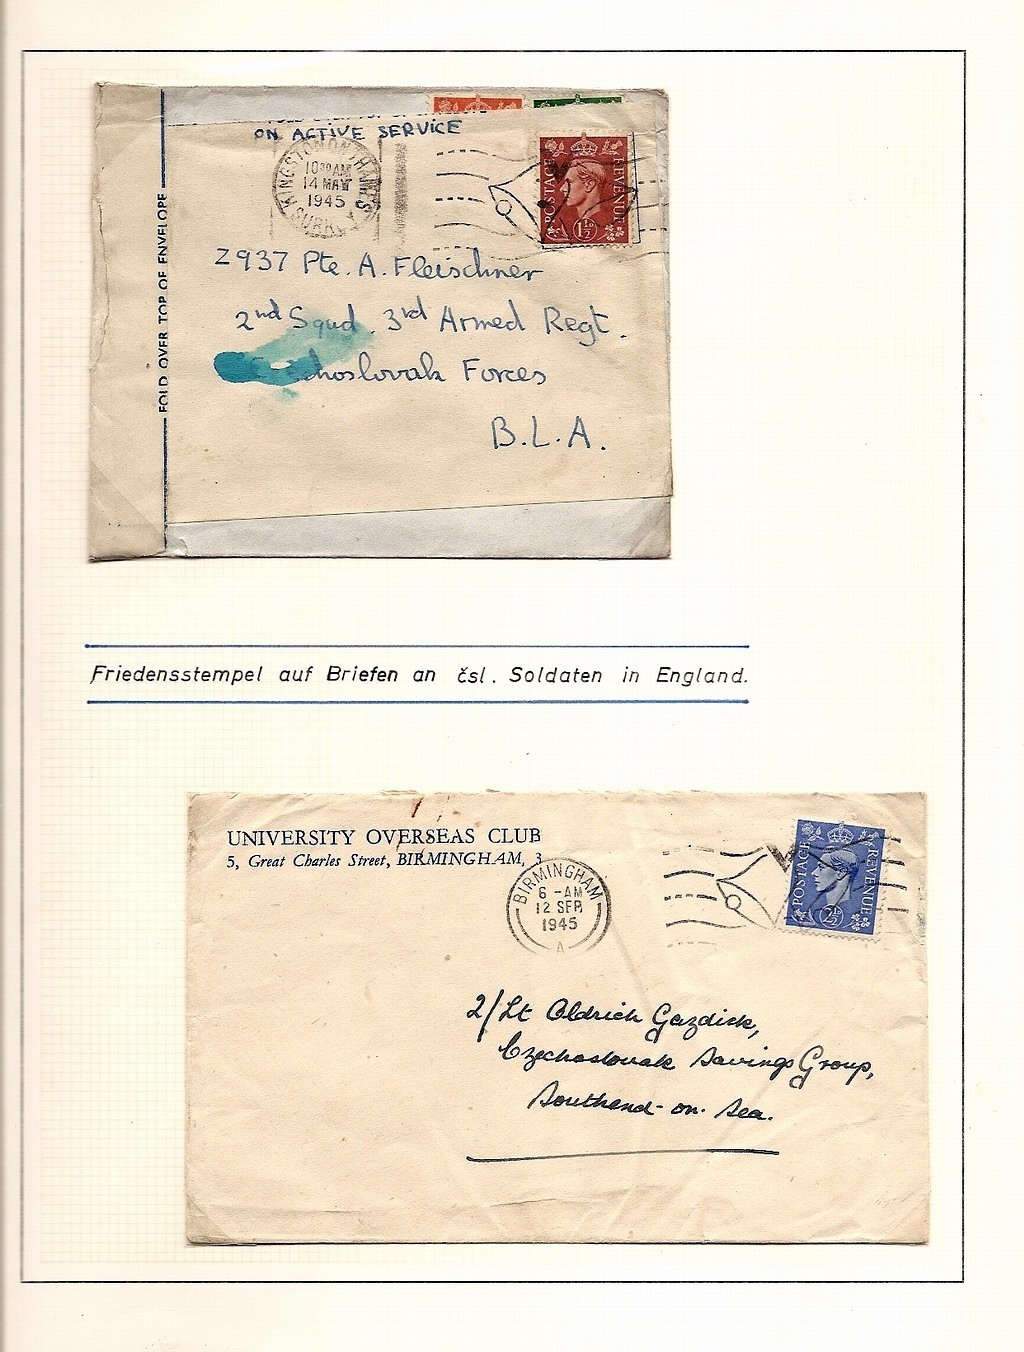 ON ACTIVE SERVICE
KINGSTON ON THAMES
10 30 AM
14 MAY
1945
SURREY
POSTAGE REVENUE
1½
FOLD OVER TOP OF ENVELOPE
Z937 Pte. A. Fleischner
2nd Squd. 3rd Armed Regt.
choslovak Forces
B.L.A.
Friedensstempel auf Briefen an čsl. Soldaten in England.
UNIVERSITY OVERSEAS CLUB
5, Great Charles Street, BIRMINGHAM, 3
BIRMINGHAM
6 - AM
12 SEP
1945
A
POSTAGE REVENUE
2½
2/Lt Oldrich Gazdick,
Czechoslovak Savings Group,
Southend-on-Sea.